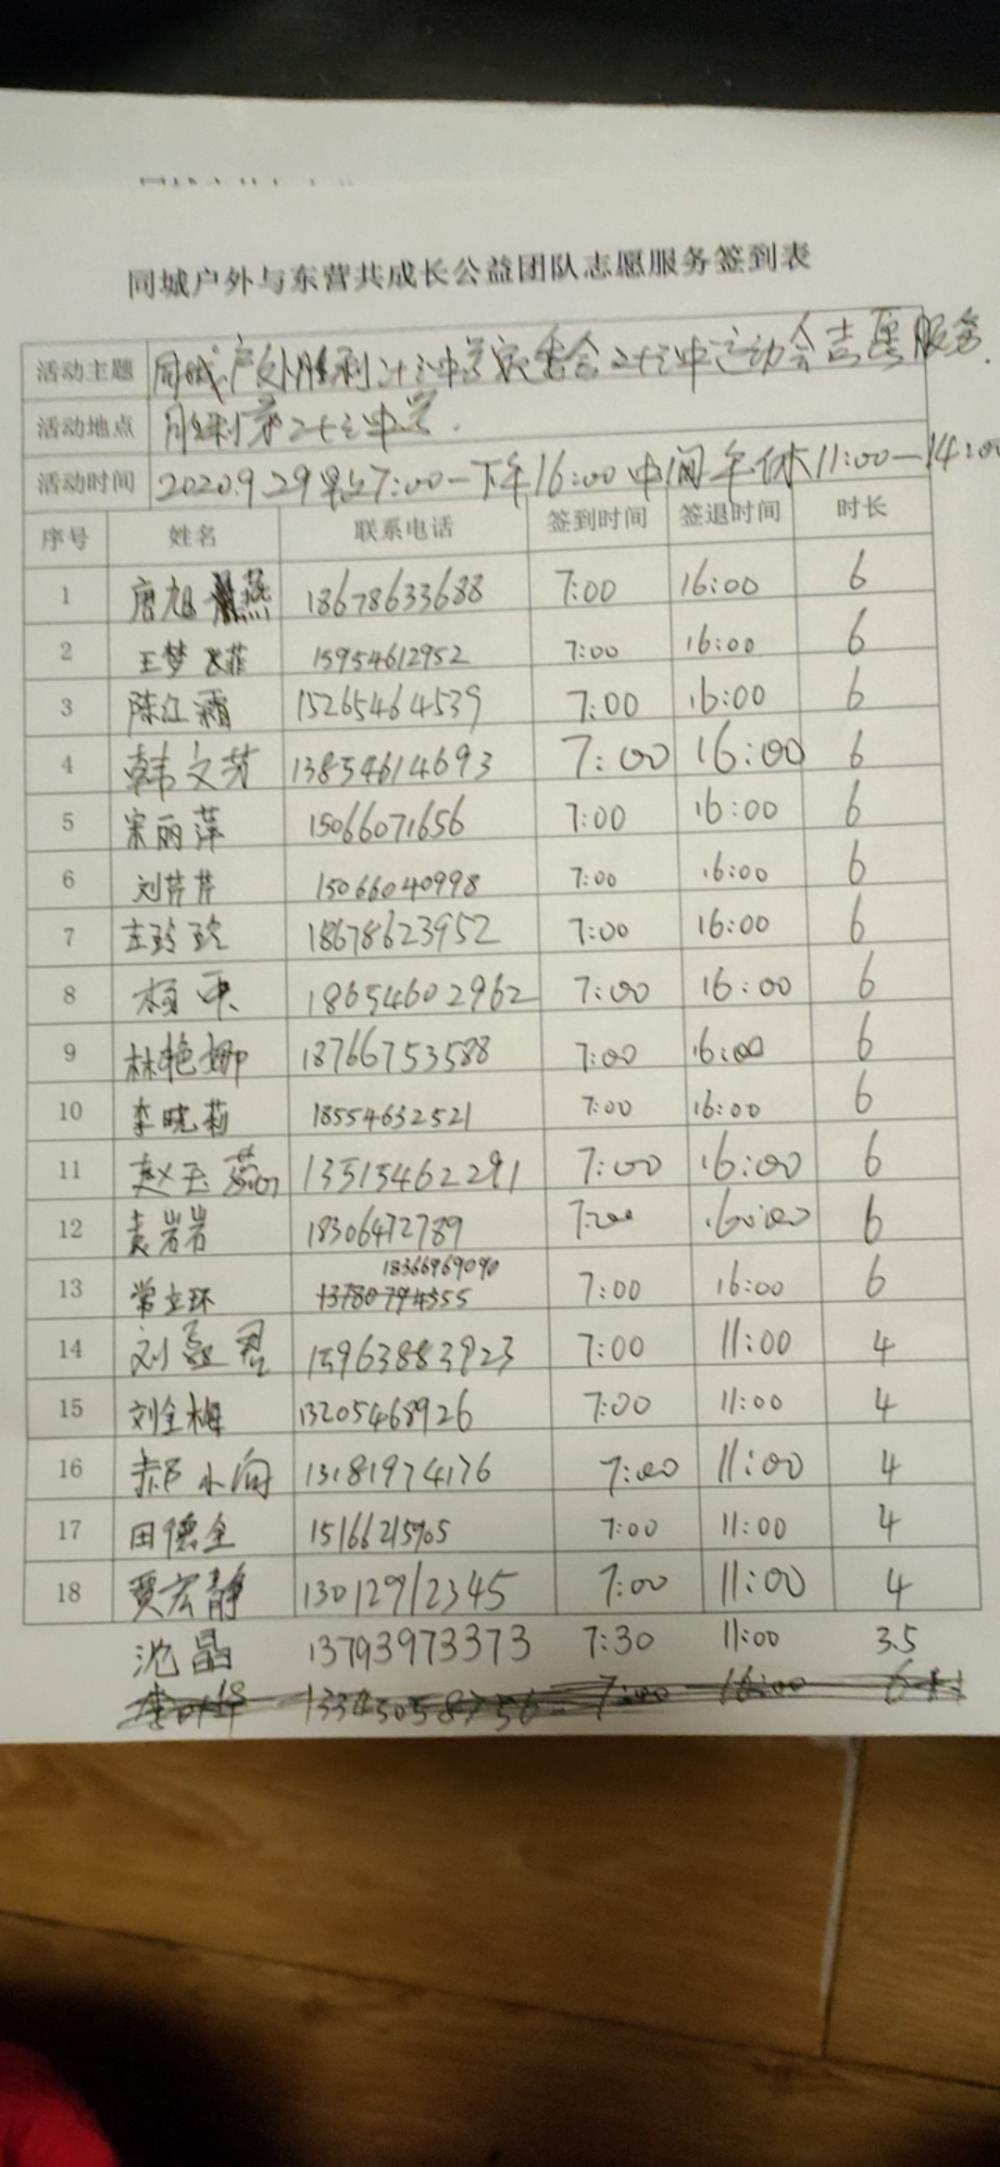 同城户外与东营共成长公益团队志愿服务签到表
活动主题 同城户外胜利二十三中学家委会二十三中运动会志愿服务.
活动地点 胜利第二十三中学.
活动时间 2020.9.29早上7:00—下午16:00 中间午休11:00—14:00
序号 姓名 联系电话 签到时间 签退时间 时长
1 唐旭燕 18678633688 7:00 16:00 6
2 王梦菲 15954612952 7:00 16:00 6
3 陈江霜 15265464539 7:00 16:00 6
4 韩文芳 13854614693 7:00 16:00 6
5 宋丽萍 15066071656 7:00 16:00 6
6 刘芹芹 15066040998 7:00 16:00 6
7 左玲玲 18678623952 7:00 16:00 6
8 杨 18654602962 7:00 16:00 6
9 林艳娜 18766753588 7:00 16:00 6
10 李晓莉 18554632521 7:00 16:00 6
11 赵玉茹 13515462291 7:00 16:00 6
12 袁岩岩 18306472789 7:00 16:00 6
18366969090
13 常立环 13780794355 7:00 16:00 6
14 刘 君 15963883923 7:00 11:00 4
15 刘全梅 13205468926 7:00 11:00 4
16 郝小向 13181974176 7:00 11:00 4
17 田德全 15166215905 7:00 11:00 4
18 贾宏静 13012912345 7:00 11:00 4
沈晶 13793973373 7:30 11:00 3.5
7:00 16:00 6